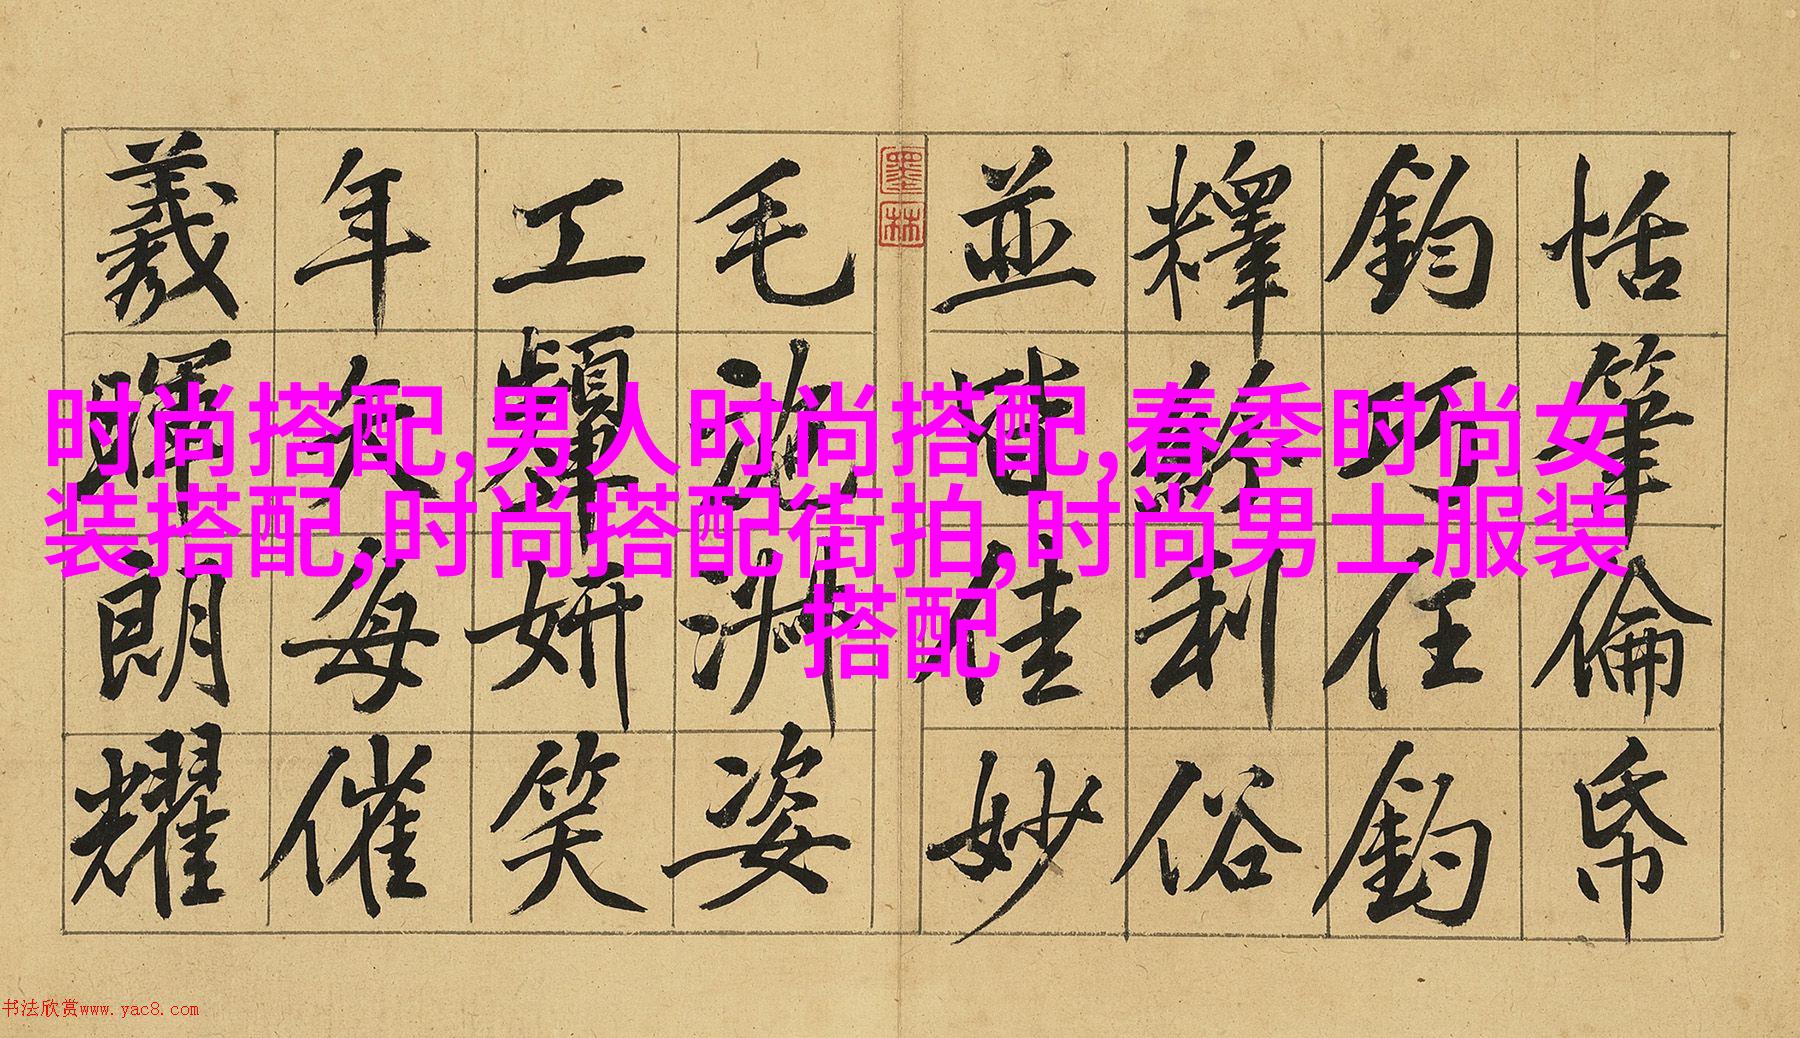 恬筆倫帋
鈞巧任鈞
釋紛利俗
並皆佳妙
墨林
毛施淑姿
工顰妍笑
年矢每催
羲暉朗耀
时尚搭配,男人时尚搭配,春季时尚女
装搭配,时尚搭配街拍,时尚男士服装
搭配
书法欣赏www.yac8.com